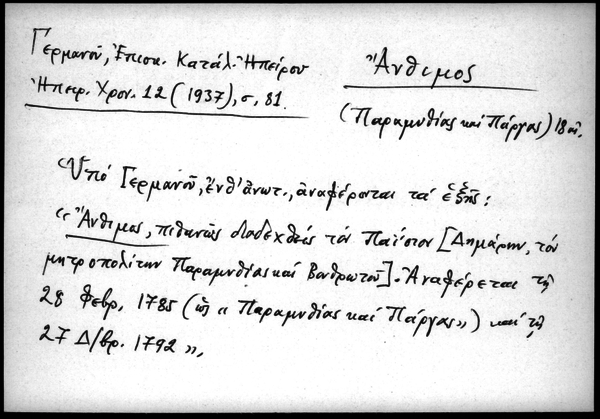 Γερμανοῦ, Ἐπισκ. Κατάλ. Ἠπείρου
Ἠπειρ. Χρον. 12 (1937), σ. 81.
Ἄνθιμος
(Παραμυθίας καὶ Πάργας) 18 αἰ.
Ὑπὸ Γερμανοῦ, ἔνθ' ἀνωτ., ἀναφέρονται τὰ ἑξῆς:
« Ἄνθιμος, πιθανῶς διαδεχθεὶς τὸν Παΐσιον [Δημάρην, τὸν
μητροπολίτην Παραμυθίας καὶ Βουθρωτοῦ]. Ἀναφέρεται τῇ
28 Φεβρ. 1785 (ὡς « Παραμυθίας καὶ Πάργας») καὶ τῇ
27 Δ/βρ. 1792 »,